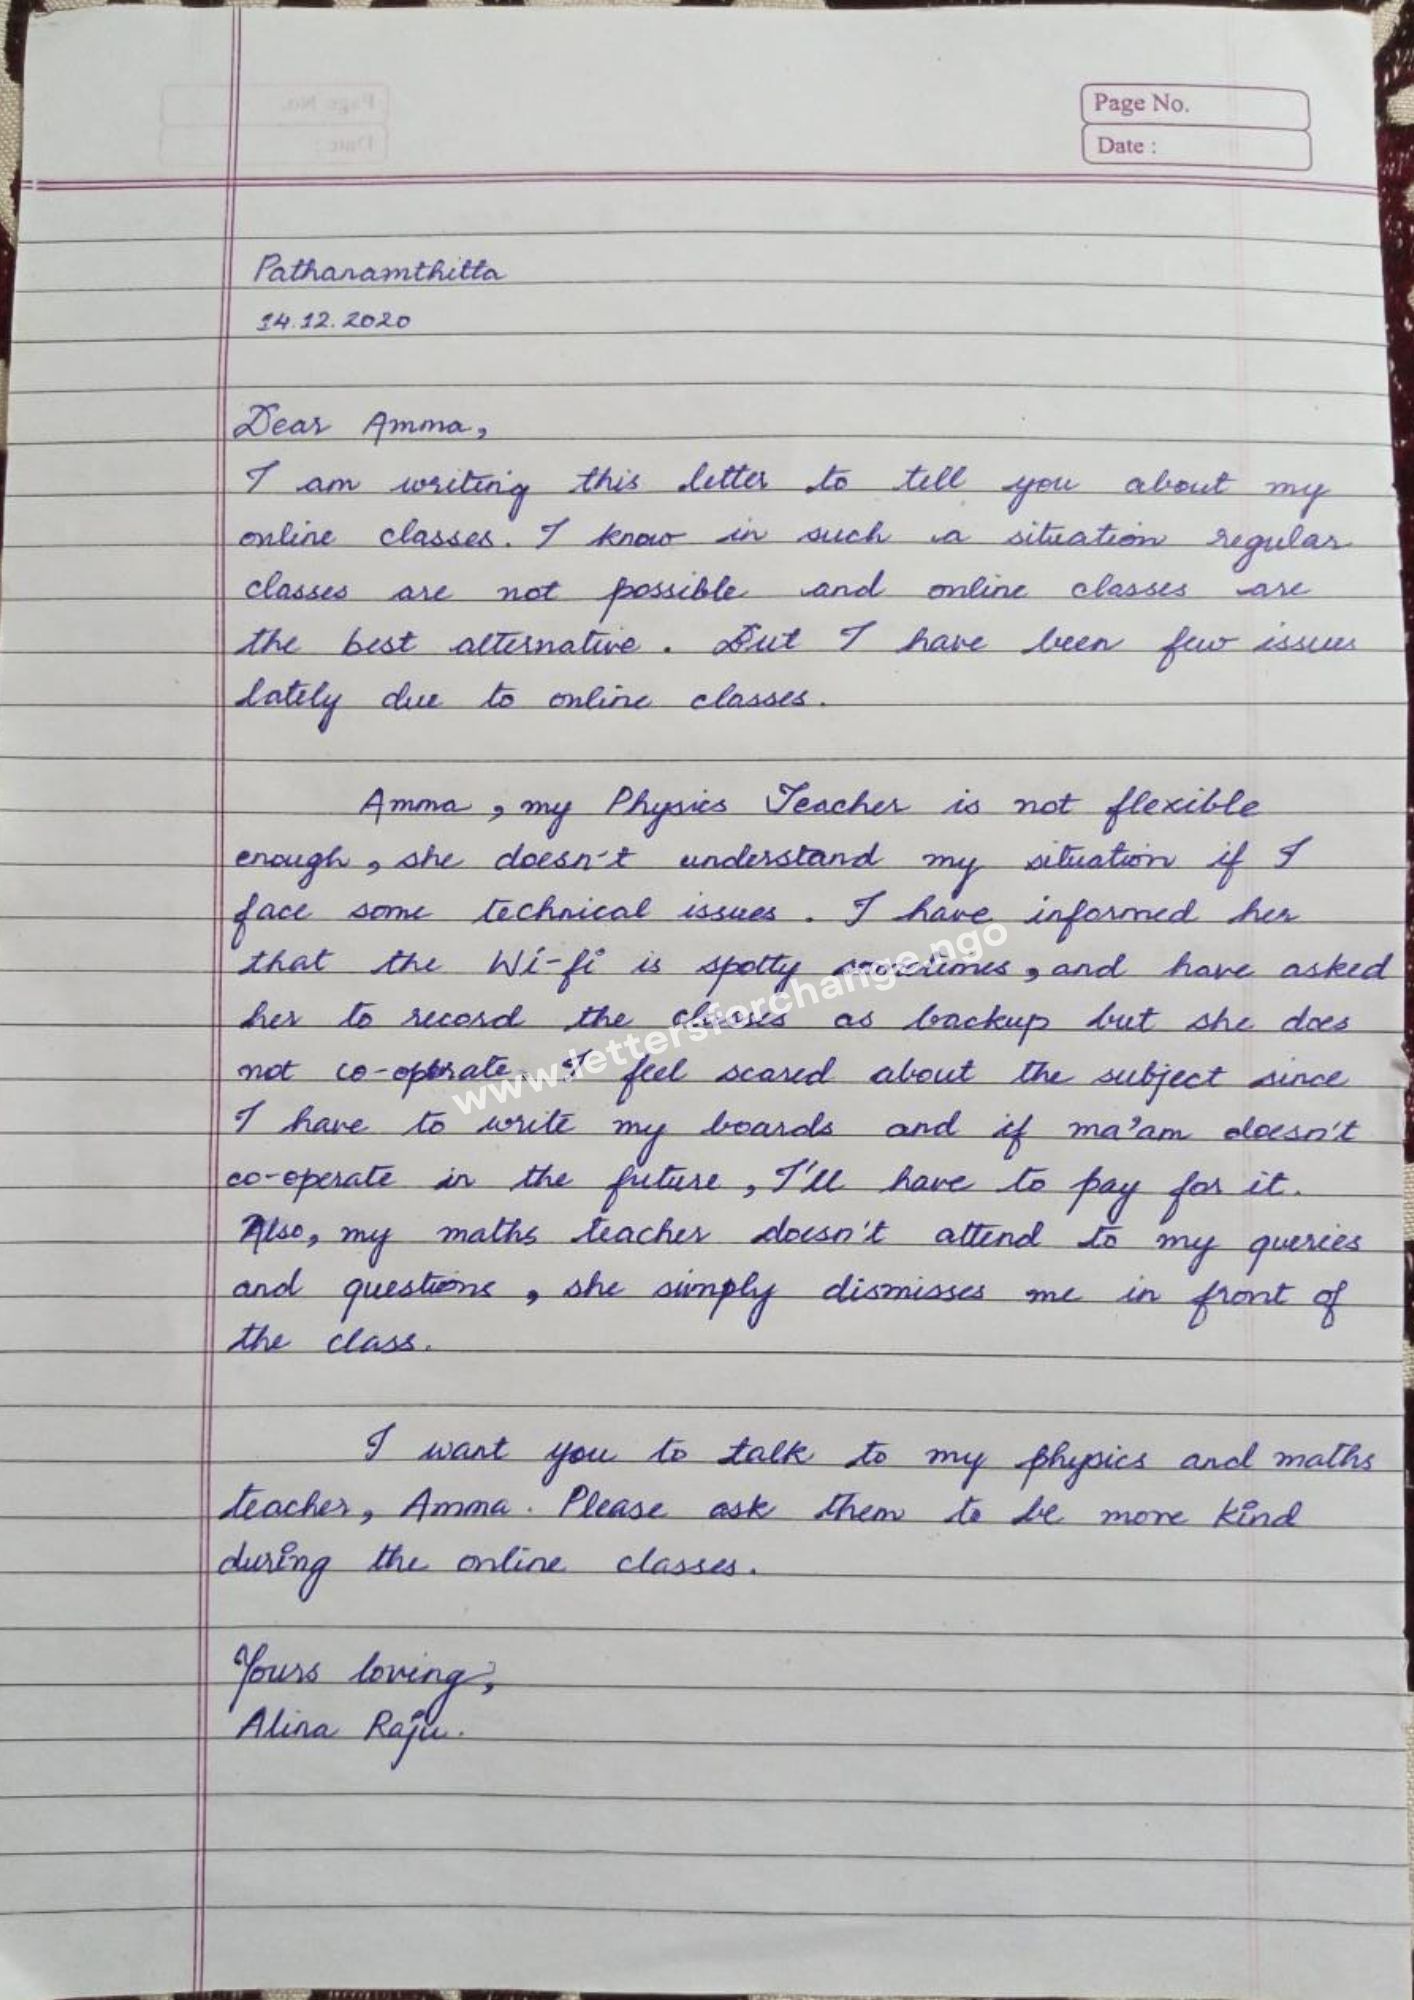 Page No.
Date :
Pathanamthitta
14.12.2020
Dear Amma,
I am writing this letter to tell you about my
online classes. I know in such a situation regular
classes are not possible and online classes are
the best alternative. But I have been few issues
lately due to online classes.
Amma, my Physics Teacher is not flexible
enough, she doesn't understand my situation if I
face some technical issues. I have informed her
that the Wi-fi is spotty sometimes, and have asked
her to record the classes as backup but she does
not co-operate. I feel scared about the subject since
I have to write my boards and if ma'am doesn't
co-operate in the future, I'll have to pay for it.
Also, my maths teacher doesn't attend to my queries
and questions, she simply dismisses me in front of
the class.
I want you to talk to my physics and maths
teacher, Amma. Please ask them to be more kind
during the online classes.
Yours loving,
Alina Raju.
www.lettersforchange.ngo